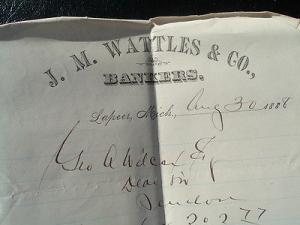 J. M. WATTLES & CO.,
BANKERS.
Lapeer, Mich., Aug 30 1888
Geo A Wilcox
Dear Sir
202 77